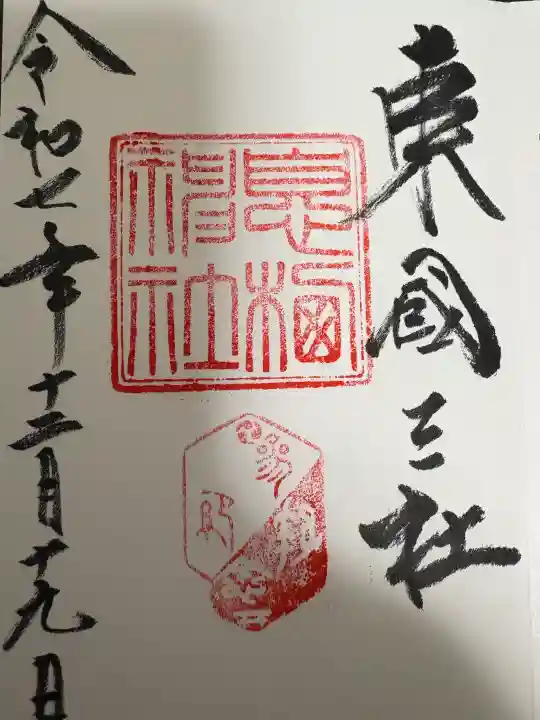 東國三社
息栖
神社
令和七年十二月十九日